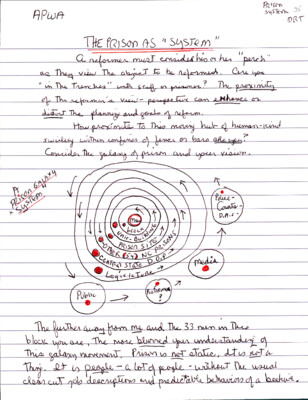 APWA
Prison
System
DRT
THE PRISON AS "SYSTEM"
A reformer must consider his or her "perch"
as they view the object to be reformed. Are you
"in the trenches" with staff or prisoner? The proximity
of the reformer's view-perspective can enhance or
distort the planning and goals of reform.
How proximate to this moving hub of human-kind
swirling within confines of fences or bars are you?
Consider the galaxy of prison and your vision.
Prison Galaxy
System
Me
Block
Unit - Building
PRISON SITE
OTHER STATE PRISONS
CENTRAL STATE D.O.C.
Legislature
Police -
Courts -
D.A.s -
Media
Reformer
?
Public
The further away from me and the 33 men in this
block you are, the more blurred your understanding of
this galaxy movement. Prison is not static. It is not a
thing. It is people - a lot of people - without the usual
clear cut job descriptions and predictable behaviors of a beehive.